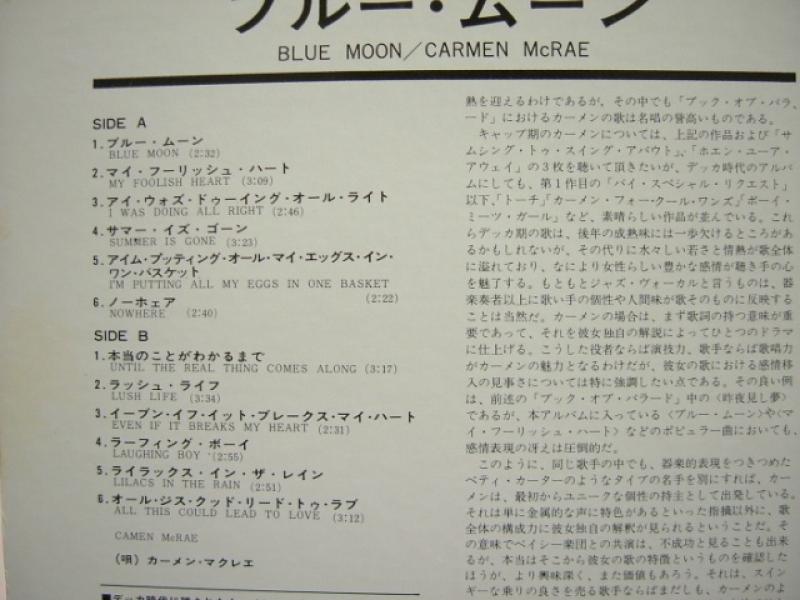 ブルー・ムーン
BLUE MOON／CARMEN McRAE
SIDE A
1.ブルー・ムーン
BLUE MOON (2:32)
2.マイ・フーリッシュ・ハート
MY FOOLISH HEART (3:09)
3.アイ・ウォズ・ドゥーイング・オール・ライト
I WAS DOING ALL RIGHT (2:46)
4.サマー・イズ・ゴーン
SUMMER IS GONE (3:23)
5.アイム・プッティング・オール・マイ・エッグス・イン・
ワン・バスケット
I'M PUTTING ALL MY EGGS IN ONE BASKET
(2:22)
6.ノーホェア
NOWHERE (2:40)
SIDE B
1.本当のことがわかるまで
UNTIL THE REAL THING COMES ALONG (3:17)
2.ラッシュ・ライフ
LUSH LIFE (3:34)
3.イーブン・イフ・イット・ブレークス・マイ・ハート
EVEN IF IT BREAKS MY HEART (2:31)
4.ラーフィング・ボーイ
LAUGHING BOY (2:55)
5.ライラックス・イン・ザ・レイン
LILACS IN THE RAIN (2:51)
6.オール・ジス・クッド・リード・トゥ・ラブ
ALL THIS COULD LEAD TO LOVE (3:12)
CAMEN McRAE
(唄) カーメン・マクレエ
熟を迎えるわけであるが、その中でも「ブック・オブ・バラ
ード」におけるカーメンの歌は名唱の誉高いものである。
キャップ期のカーメンについては、上記の作品および「サ
ムシング・トゥ・スイング・アバウト」、「ホエン・ユーア・
アウェイ」の3枚を聴いて頂きたいが、デッカ時代のアルバ
ムにしても、第1作目の「バイ・スペシャル・リクエスト」
以下、「トーチ」「カーメン・フォー・クール・ワンズ」「ボーイ・
ミーツ・ガール」など、素晴らしい作品が並んでいる。これ
らデッカ期の歌は、後年の成熟味には一歩欠けるところがあ
るかもしれないが、その代りに水々しい若さと情熱が歌全体
に溢れており、なにより女性らしい豊かな感情が聴き手の心
を魅了する。もともとジャズ・ヴォーカルと言うものは、器
楽奏者以上に歌い手の個性や人間味が歌そのものに反映する
ことは当然だ。カーメンの場合は、まず歌詞の持つ意味が重
要であって、それを彼女独自の解説によってひとつのドラマ
に仕上げる。こうした役者ならば演技力、歌手ならば歌唱力
がカーメンの魅力となるわけだが、彼女の歌における感情移
入の見事さについては特に強調したい点である。その良い例
は、前述の「ブック・オブ・バラード」中の〈昨夜見し夢〉
であるが、本アルバムに入っている〈ブルー・ムーン〉や〈マ
イ・フーリッシュ・ハート〉などのポピュラー曲においても、
感情表現の冴えは圧倒的だ。
このように、同じ歌手の中でも、器楽的表現をつきつめた
ベティ・カーターのようなタイプの名手を別にすれば、カー
メンは、最初からユニークな個性の持主として出発している。
それは単に金属的な声に特色があるといった指摘以外に、歌
全体の構成力に彼女独自の解釈が見られるということだ。そ
の意味でベイシー楽団との共演は、不成功と見ることも出来
るが、本当はそこから彼女の歌の特徴というものを確認した
ほうが、より興味深く、また価値もあろう。それは、スイン
ギーな乗りの良さを売る歌手ならばまだしも、カーメンのよ